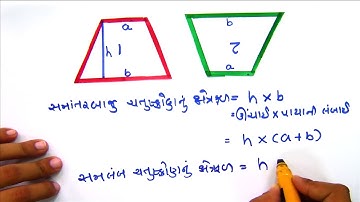 a
h 1
b
b
2
a
સમાંતરબાજુ ચતુષ્કોણનું ક્ષેત્રફળ = h × b
= ઊંચાઈ × પાયાની લંબાઈ
= h × (a+b)
સમલંબ ચતુષ્કોણનું ક્ષેત્રફળ = h